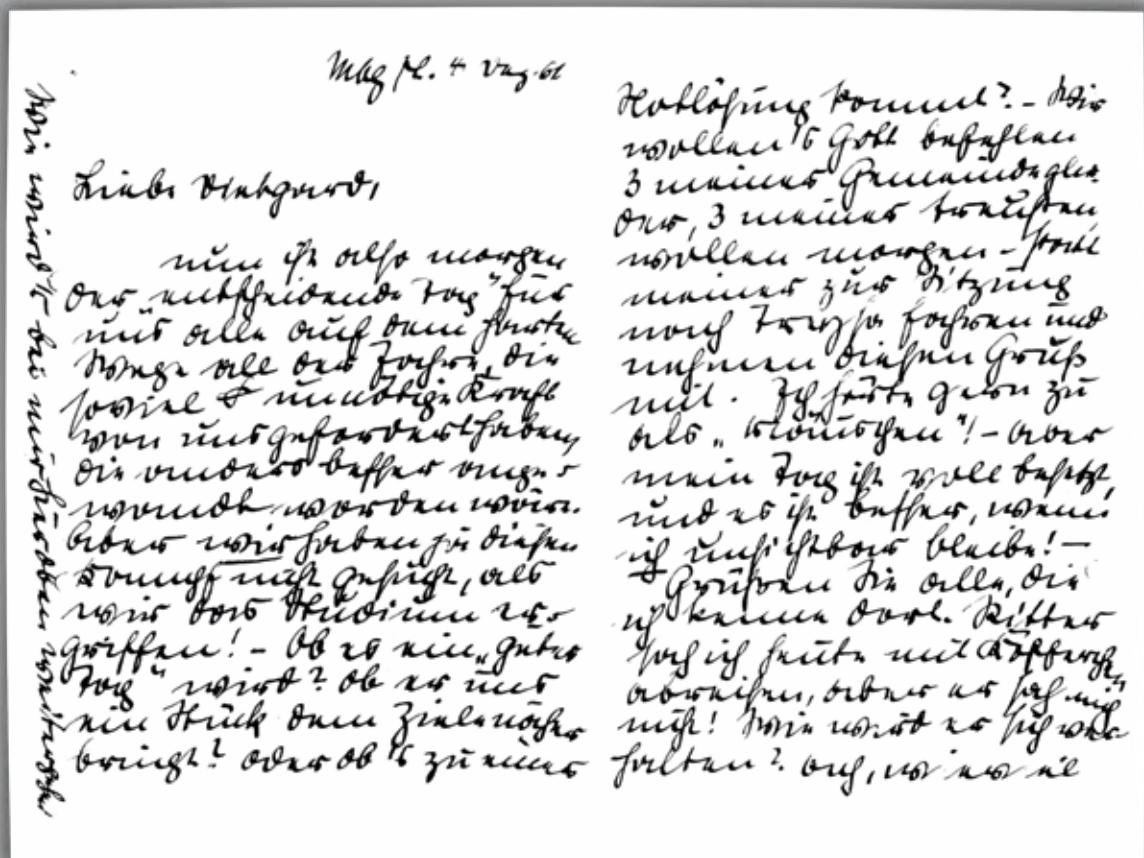 Mbg /L. 4 Dez. 61
Liebe Dietgard,
nun ist also morgen
der „entscheidende Tag" für
uns alle auf dem harten
Wege all der Jahre, die
soviel unnötige Kraft
von uns gefordert haben,
die anders besser ange-
wandt worden wäre.
Aber wir haben ja diesen
Kampf nicht gesucht, als
wir das Studium er-
griffen! - Ob es ein „guter
Tag" wird? Ob er uns
ein Stück dem Ziele näher
bringt? Oder ob's zu einer
Notlösung kommt? - Wir
wollen's Gott befehlen
3 meiner Gemeindeglie-
der, 3 meiner treusten
wollen morgen - statt
meiner zur Sitzung
nach Treysa fahren und
nehmen diesen Gruß
mit. Ich hörte gern zu
als „Mäuschen"! - aber
mein Tag ist voll besetzt,
und es ist besser, wenn
ich unsichtbar bleibe! -
Grüßen Sie alle, die
ich kenne dort. Ritter
sah ich heute mit Köfferchen
abreisen, aber er sah mich
nicht! Wie wird er sich ver-
halten? Ach, wie viel
Wie wird's bei mir hier oben weitergehen